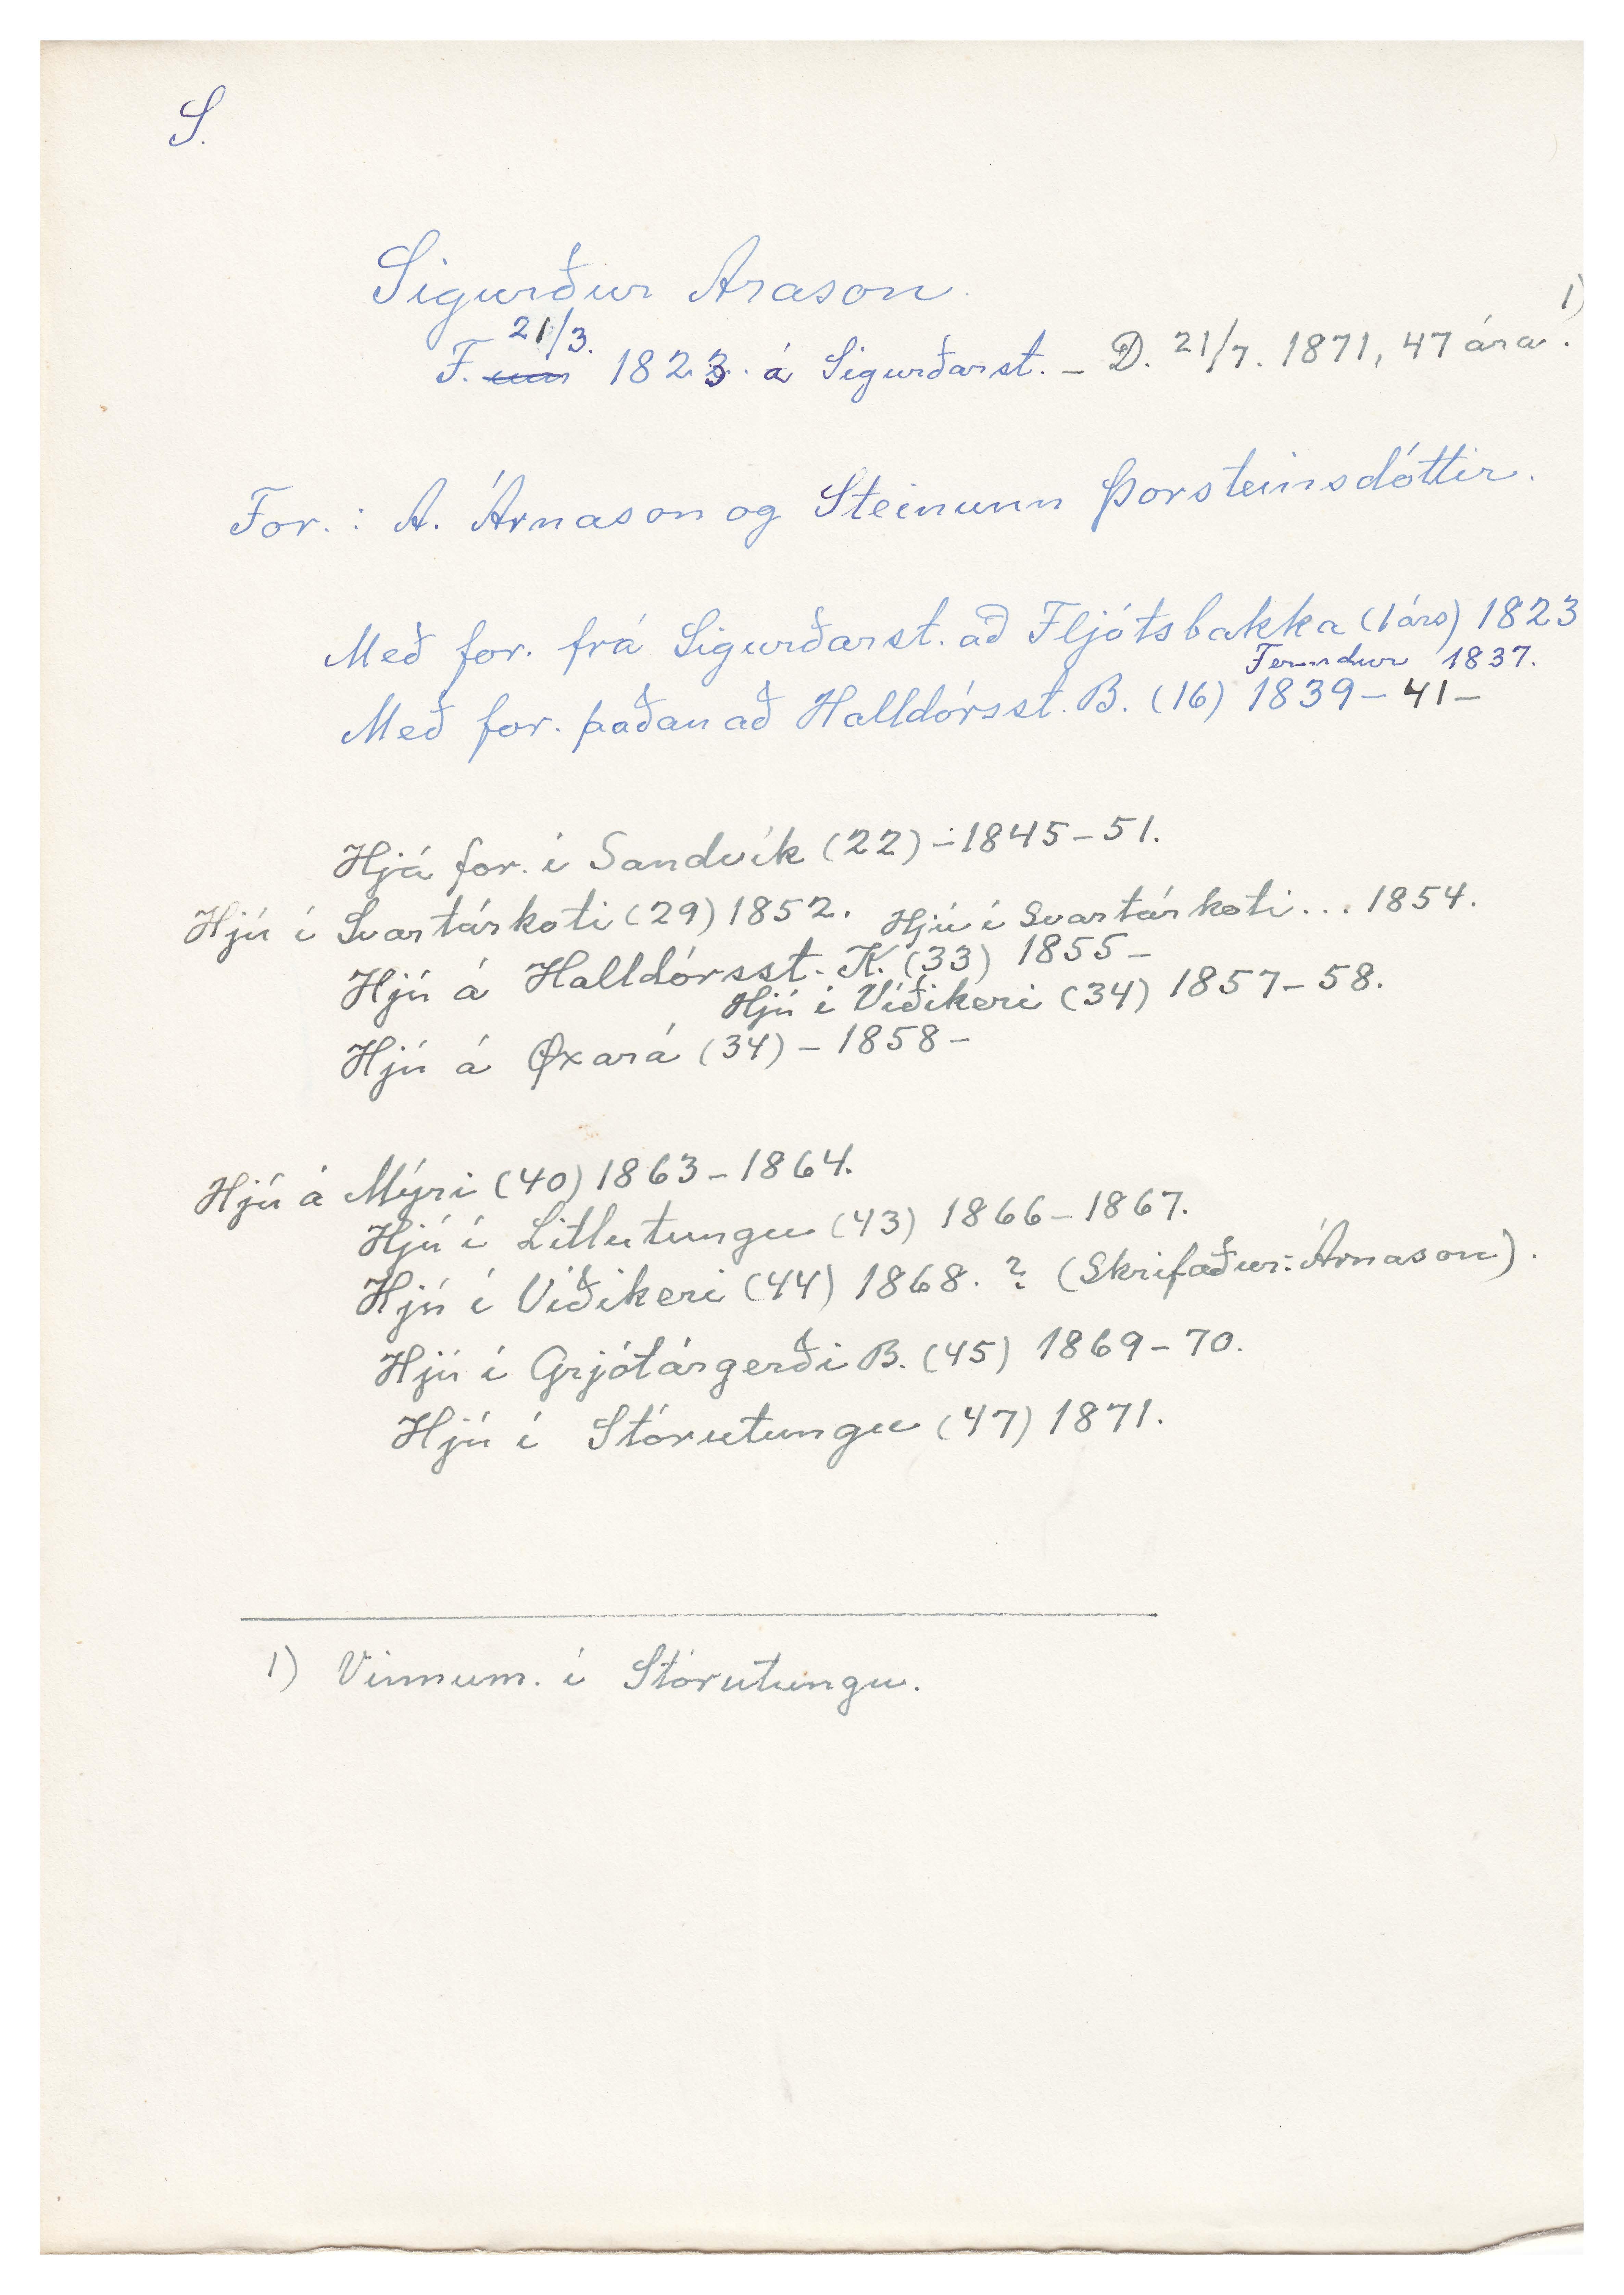 S.
Sigurður Arason.
1)
21/3.
F. um 1823. á Sigurðarst. - D. 21/7. 1871, 47 ára.
For.: A. Árnason og Steinunn Þorsteinsdóttir.
Með for. frá Sigurðarst. að Fljótsbakka (1 árs) 1823
Fermdur 1837.
Með for. þaðan að Halldórsst. B. (16) 1839-41-
Hjá for. í Sandvík (22) - 1845-51.
Hjú í Svartárkoti (29) 1852. Hjú í Svartárkoti... 1854.
Hjú á Halldórsst. K. (33) 1855-
Hjú í Víðikeri (34) 1857-58.
Hjú á Øxará (34) - 1858-
Hjú á Mýri (40) 1863-1864.
Hjú í Litlutungu (43) 1866-1867.
Hjú í Víðikeri (44) 1868. ? (Skrifaður: Árnason).
Hjú í Grjótárgerði B. (45) 1869-70.
Hjú í Stórutungu (47) 1871.
1) Vinnum. í Stórutungu.